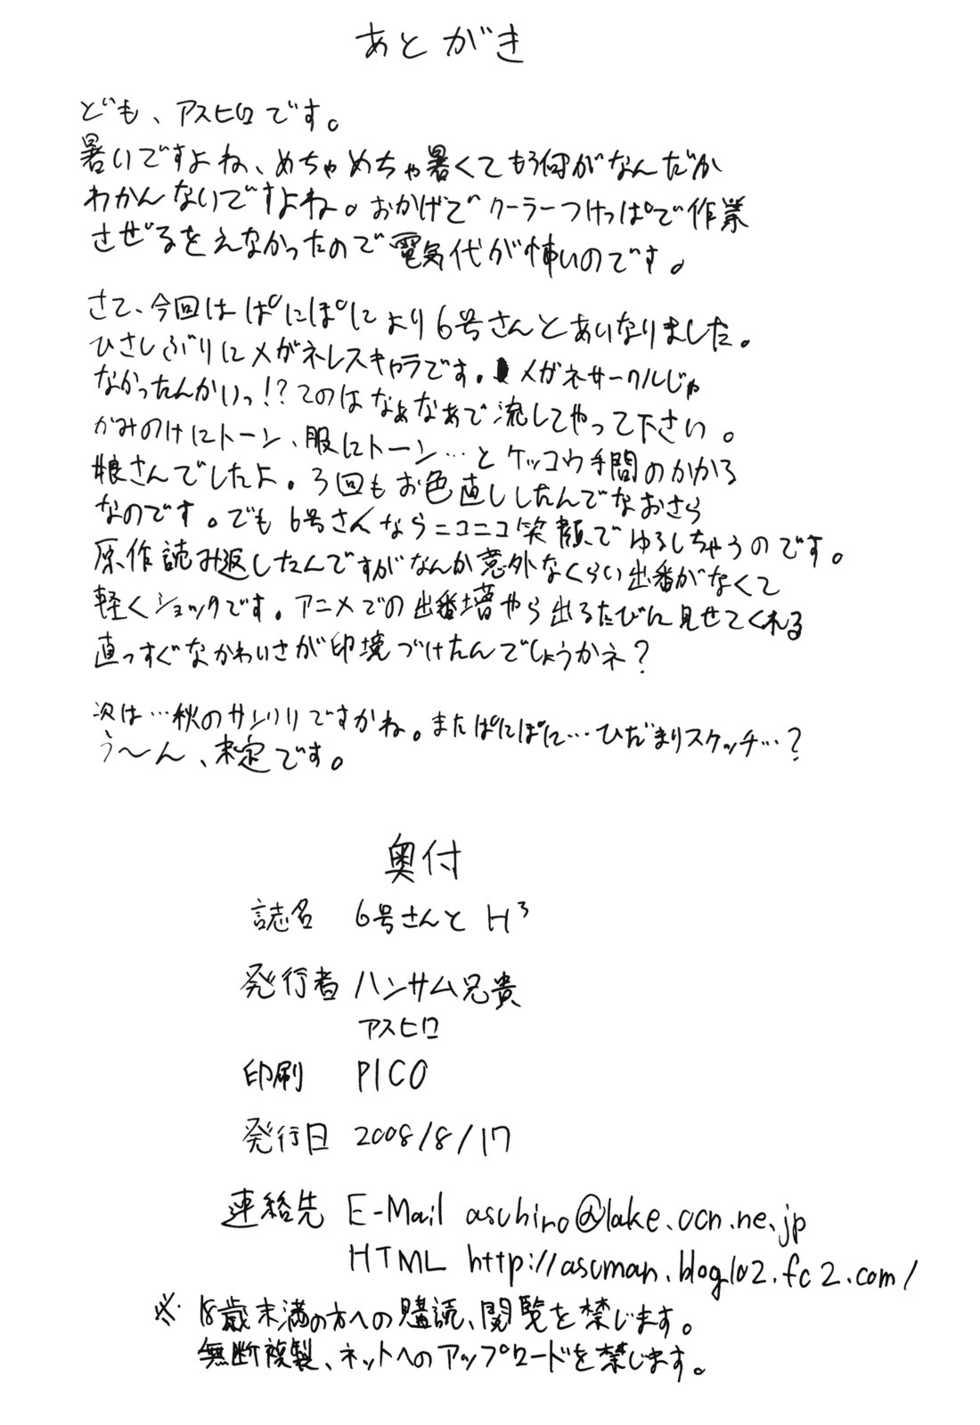 あとがき
ども、アスヒロです。
暑いですよね、めちゃめちゃ暑くてもう何がなんだか
わかんないですよね。おかげでクーラーつけっぱで作業
させるをえなかったので電気代が怖いのです。
さて、今回はぱにぽにより6号さんとあいなりました。
ひさしぶりにメガネレスキャラです。メガネサークルじゃ
なかったんかいっ!?てのはなぁなぁで流してやって下さい。
かみのけにトーン、服にトーン…とケッコウ手間のかかる
娘さんでしたよ。3回もお色直ししたんでなおさら
なのです。でも6号さんならニコニコ笑顔でゆるしちゃうのです。
原作読み返したんですがなんか意外なくらい出番がなくて
軽くショックです。アニメでの出番増やら出るたびに見せてくれる
直っすぐなかわいさが印境づけたんでしょうかネ?
次は…秋のサンクリですかね。またぱにぽに…ひだまりスケッチ…?
う～ん、未定です。
奥付
誌名 6号さんと H³
発行者 ハンサム兄貴
アスヒロ
印刷 PICO
発行日 2008/8/17
連絡先 E-Mail asuhiro@lake.ocn.ne.jp
HTML http://asuman.blog102.fc2.com/
※ 18歳未満の方への購読、閲覧を禁じます。
無断複製、ネットへのアップロードを禁じます。